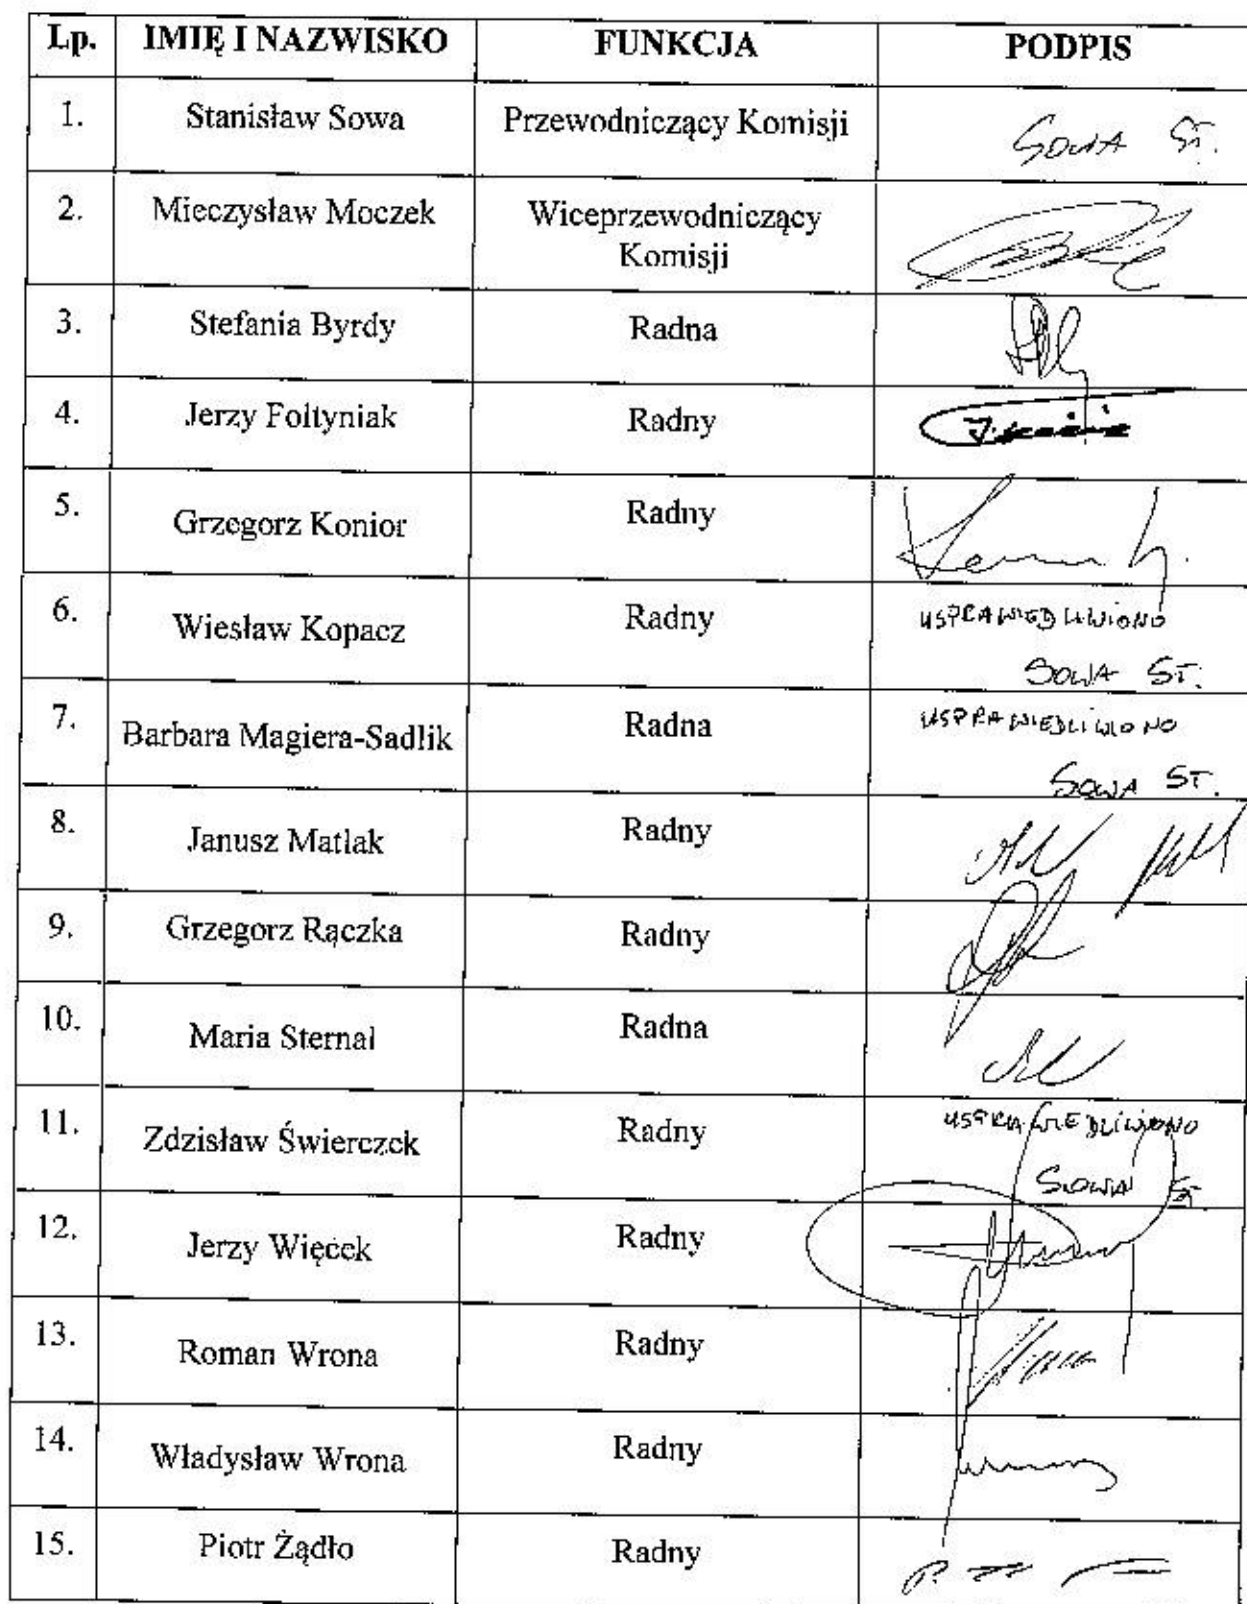 Lp. IMIĘ I NAZWISKO FUNKCJA PODPIS
1. Stanisław Sowa Przewodniczący Komisji SOWA ST.
2. Mieczysław Moczek Wiceprzewodniczący
Komisji
3. Stefania Byrdy Radna
4. Jerzy Foltyniak Radny
5. Grzegorz Konior Radny
6. Wiesław Kopacz Radny USPRAWIEDLIWIONO
SOWA ST.
7. Barbara Magiera-Sadlik Radna USPRAWIEDLIWIONO
SOWA ST.
8. Janusz Matlak Radny
9. Grzegorz Rączka Radny
10. Maria Sternal Radna
11. Zdzisław Świerczek Radny USPRAWIEDLIWIONO
SOWA ST.
12. Jerzy Więcek Radny
13. Roman Wrona Radny
14. Władysław Wrona Radny
15. Piotr Żądło Radny